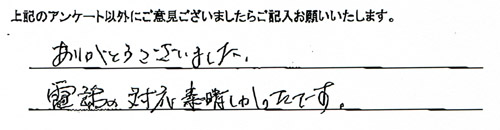 上記のアンケート以外にご意見ございましたらご記入お願いいたします。
ありがとうございました。
電話の対応素晴しかったです。